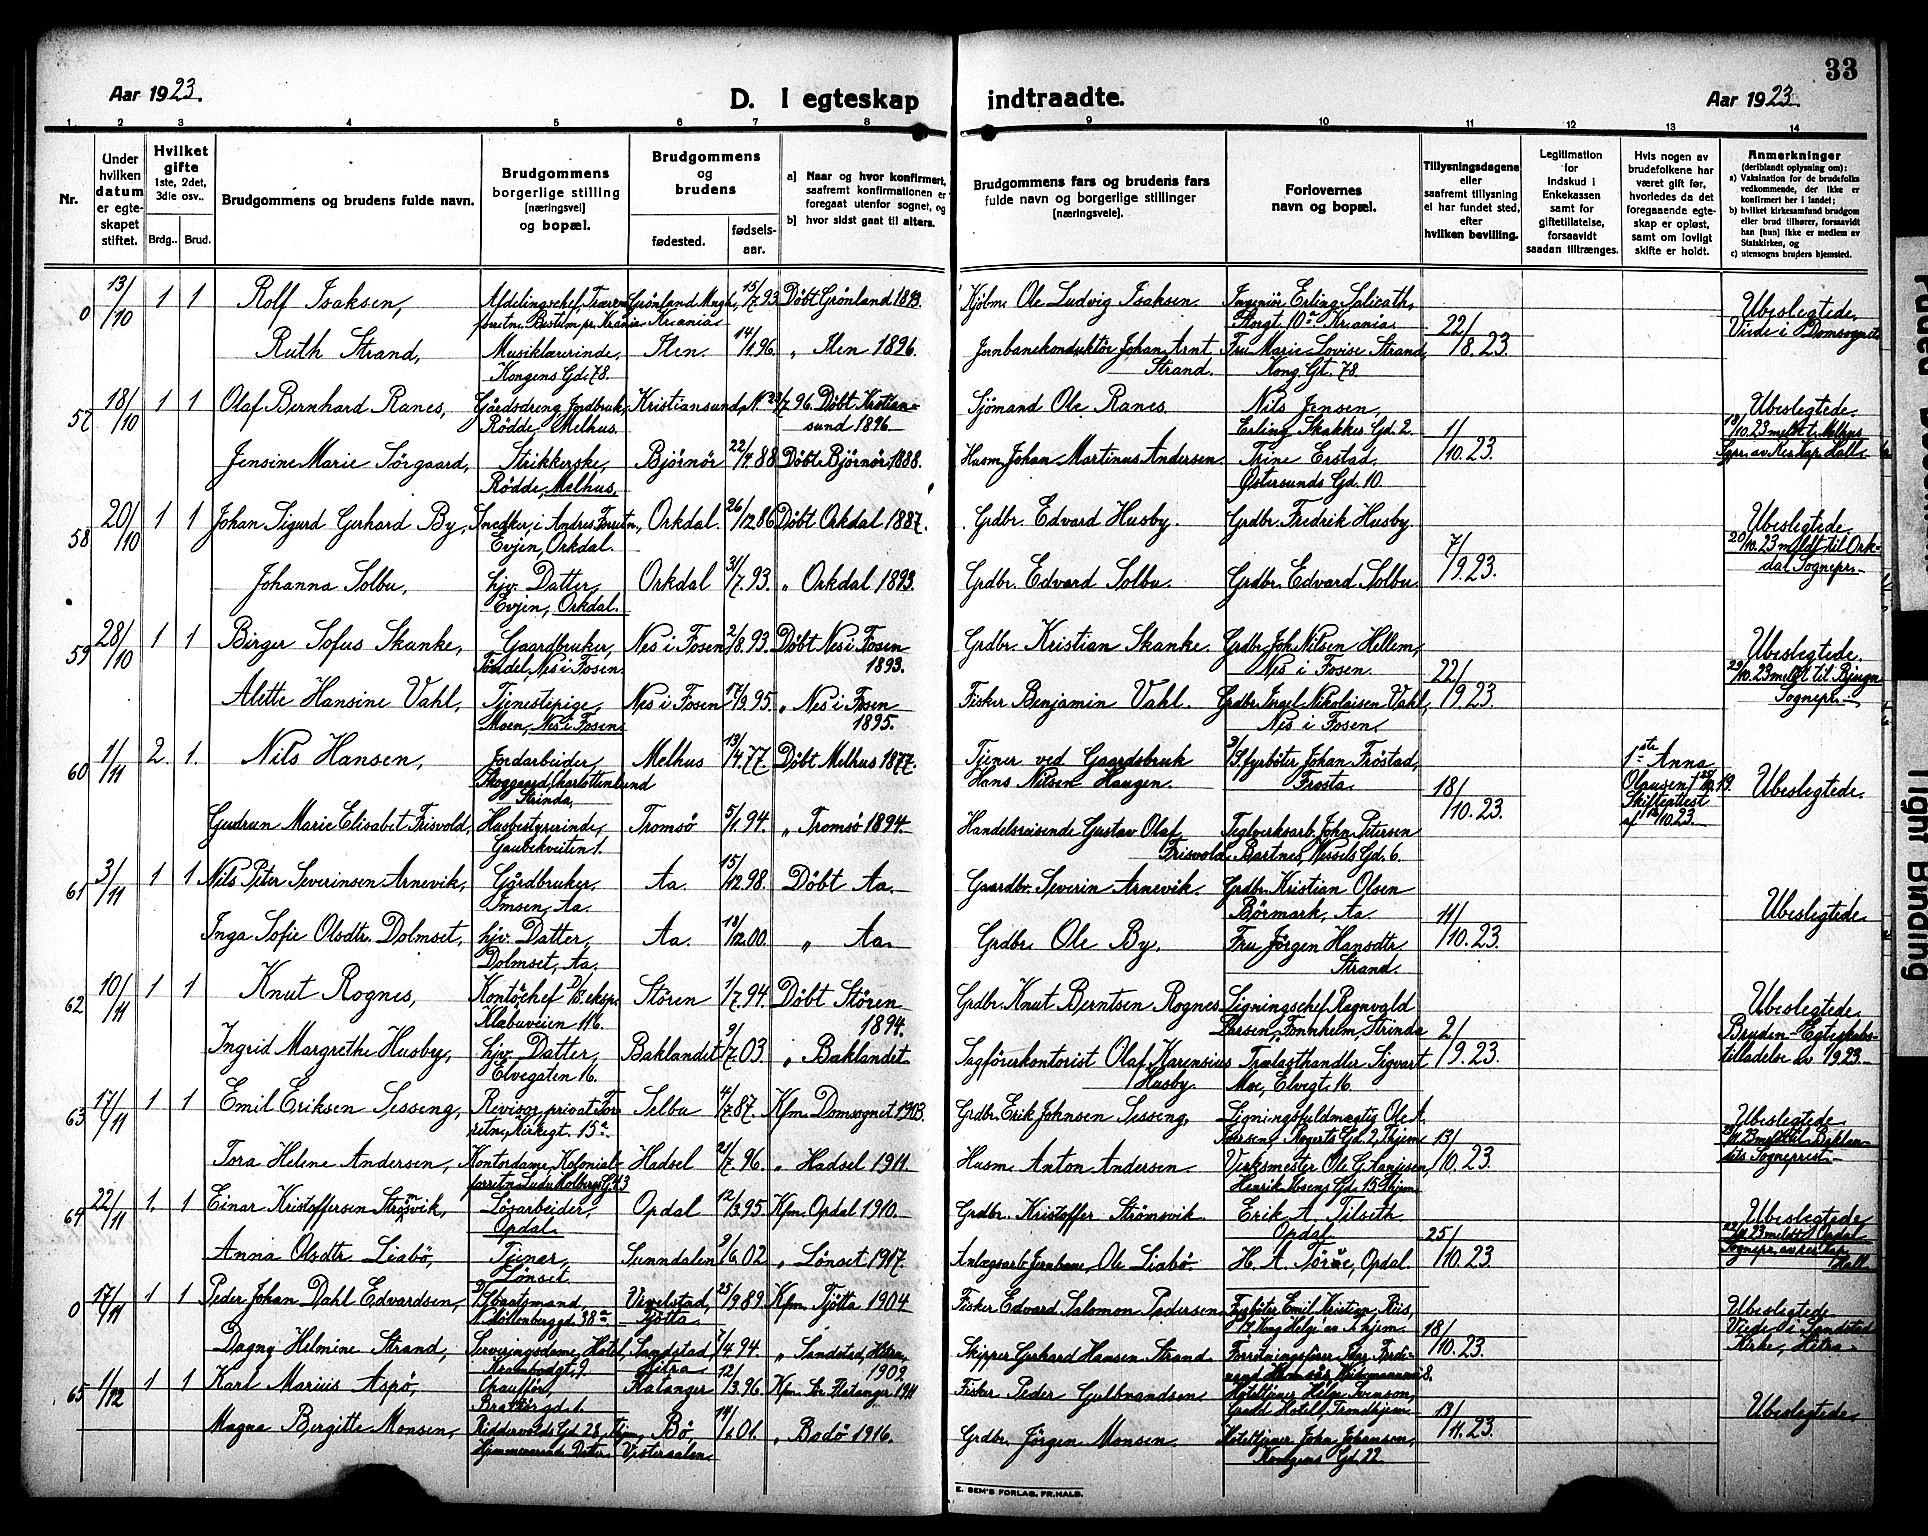 33
Aar 1923.
D. I egteskap
indtraadte.
Aar 1923.
1 2 3 4 5 6 7 8 9 10 11 12 13 14
Nr.
Under hvilken datum er egte-skapet stiftet.
Hvilket gifte 1ste, 2det, 3die osv..
Brdg.. Brud.
Brudgommens og brudens fulde navn.
Brudgommens borgerlige stilling [næringsvei] og bopæl.
Brudgommens og brudens
fødested. fødsels-aar.
a) Naar og hvor konfirmert, saafremt konfirmationen er foregaat utenfor sognet, og
b) hvor sidst gaat til alters.
Brudgommens fars og brudens fars fulde navn og borgerlige stillinger [næringsveie].
Forlovernes navn og bopæl.
Tillysningsdagene eller saafremt tillysning ei har fundet sted, efter hvilken bevilling.
Legitimation for Indskud i Enkekassen samt for giftetillatelse, forsaavidt saadan tiltrænges.
Hvis nogen av brudefolkene har været gift før, hvorledes da det foregaaende egte-skap er opløst, samt om lovligt skifte er holdt.
Anmerkninger (deriblandt oplysning om):
a) Vaksination for de brudefolks vedkommende, der ikke er konfirmert her i landet;
b) hvilket kirkesamfund brudgom eller brud tilhører, forsaavidt han [hun] ikke er medlem av Statskirken, og
c) utensogns bruders hjemsted.
0 13/10 1 1 Rolf Isaksen, Afdelingschef, 15/7 93 Døbt Grönland 1893. Ole Ludvig Isaksen Ingeniör Erling Salicath, Storgt. 10a Kr.ania. Ubeslegtede.
Viede i Domsognet
Ruth Strand, Musiklærerinde, Kongens Gd. 78. Ilen. 14/1 96. „ Ilen 1896. Jernbanekonduktör Johan Arnt Strand. Fru Marie Lovise Strand, Kong. Gt. 78 22/8. 23.
57 18/10 1 1 Olaf Bernhard Ranes, Gårdsdreng Jordbruk, Rödde, Melhus. Kristiansund, 96. Döbt Kristian-sund 1896 Sjömand Ole Ranes. Nils Jensen, Erling Skakkes Gd. 2. Ubeslegtede.
18/10. 23 meldt t. Melhus
Jensine Marie Sörgaard, Strikkerske, Rödde, Melhus. Björnör 22/4 88 Döbt Björnör 1888. Husm. Johan Martinus Andersen. Trine Erstad. Østersunds Gd. 10. 1/10. 23.
58 20/10 1 1 Johan Sigurd Gerhard By, Snedker, i Andres Forretn., Evjen, Orkdal. Orkdal. 26/12 86 Döbt Orkdal 1887. Grdbr. Edvard Husby. Grdbr. Fredrik Husby. Ubeslegtede.
20/10. 23 meldt til Ork-dal Sognepr.
Johanna Solbu, hjv. Datter, Evjen, Orkdal. Orkdal 31/7. 93. „ Orkdal 1893. Grdbr. Edvard Solbu Grdbr. Edvard Solbu. 7/9. 23.
59 28/10 1 1 Birger Sofus Skanke, Gaardbruker, Nes i Fosen. Nes i Fosen 2/8. 93. Döbt Nes i Fosen 1893. Grdbr. Kristian Skanke. Grdbr. Joh. Nilsen Hellem, Nes i Fosen. Ubeslegtede.
29/10. 23 meldt til Bjugn Sognepr.
Alette Hansine Vahl, Tjenestepige, Moen, Nes i Fosen. Nes i Fosen 17/9. 95. „ Nes i Fosen 1895. Fisker Benjamin Vahl. Grdbr. Ingel Nikolaisen Vahl, Nes i Fosen. 22/9. 23.
60 1/11 2. 1. Nils Hansen, Jordarbeider, Skoggaard, Charlottenlund Strinda. Melhus 13/4. 77. Döbt Melhus 1877. Tjener ved Gaardsbruk Hans Nilsen Haugen. Johan Fröstad, Frosta. 1ste Anna Olausen Skifteattest Ubeslegtede.
Gudrun Marie Elisabet Frisvold, Husbestyrerinde, Gaubekveiten 1. Tromsö 5/1. 94. „ Tromsö 1894. Handelsreisende Gustav Olaf Frisvold. Teglverksarb. John Petersen Bartnes, Wessels Gd. 6. 18/10. 23.
61 3/11 1 1 Nils Peter Severinsen Arnevik, Gårdbruker, Imsen, Aa. Aa. 15/12 98. Döbt Aa. Gaardbr. Severin Arnevik. Grdbr. Kristian Olsen Börmark, Aa. Ubeslegtede
Inga Sofie Olsdtr. Dolmset, hjv. Datter, Dolmset, Aa. Aa. 18/12 00. „ Aa. Grdbr. Ole By. Fru Jörgen Hansdtr Strand. 11/10. 23.
62 10/11 1 1 Knut Rognes, Klæbuveien 116. Stören 1/7. 94. Döbt Stören 1894. Grdbr. Knut Berntsen Rognes Ligningschef Ragnvald Larsen, Strinda Ubeslegtede.
Bruden Egteskabs-tilladelse av 1/9 23.
Ingrid Margrethe Husby, hjv. Datter, Elvegaten 16. Baklandet 9/7. 03. „ Baklandet Sagförerkontorist Olaf Karensius Husby. Trælasthandler Sigvart Moe, Elvegt. 16. 2/9. 23.
63 17/11 1 1 Emil Eriksen Sesseng, Revisor, privat For-retn. Kirkegt. 15a. Selbu 4/7. 87. Kfm. Domsognet 1903. Grdbr. Erik Johnsen Sesseng, Ligningsfuldmægtig Ole A. Iversen, Rogerts Gd. 2, Thjem Ubeslegtede
Tora Helene Andersen, Kontordame, Kolonial-forretn. Hadsel 21/7. 96. „ Hadsel 1911 Husm. Anton Andersen Verksmester Ole G. Aanjesen, Henrik Ibsens Gd. 15 Thjem 13/10. 23.
64 22/11 1. 1 Einar Kristoffersen Strömsvik, Lösarbeider, Opdal Opdal 12/3. 95 Kfm. Opdal 1910. Grdbr. Kristoffer Strömsvik Erik A. Tilseth Opdal Ubeslegtede
22/11 23 meldt t. Opdal
Anna Olsdtr. Liabö, Tjener, Lönset. Sunndalen 2/6 02 „ Lönset 1917. Anlægsarb. Jernbane, Ole Liabö H. A. Törve, Opdal. 25/10. 23.
0 17/11 1 1 Peder Johan Dahl Edvardsen, Möllenberggd. 38a. Vevelstad, Tjötta. 25/9. 89. Kfm. Tjötta 1904 Fisker Edvard Salomon Pedersen Fyrböter Emil Kristian Riis, Kong Helge av Thjem. Ubeslegtede
Viede i Sandstad Kirke, Hitra
Dagny Helmine Strand, Serveringsdame, Hotel, Krambodgt. 9. Sandstad, Hitra 7/4. 94. „ Sandstad, Hitra, 1909. Skipper Gerhard Hansen Strand. 18/10. 23.
65 1/12 1 1 Karl Marius Aspö, Chauffør, Bratörgd. 1 Flatanger 12/3. 96. Kfm. Flatanger 1911 Fisker Peder Gulbrandsen Hoteltjener Helge Svenson, Grand Hotell, Trondhjem. Ubeslegtede
Magna Bergitte Monsen, Riddervolds Gd. 28, Thjem, Hjemmeværende Datter. Bö Vesteraalen. 19/1. 01. „ Bodö 1916. Grdbr. Jörgen Monsen. Hoteltjener John Johansen, Kongens Gd. 22 13/11. 23.
E. SEM'S FORLAG, FR.HALD.
Tight Binding